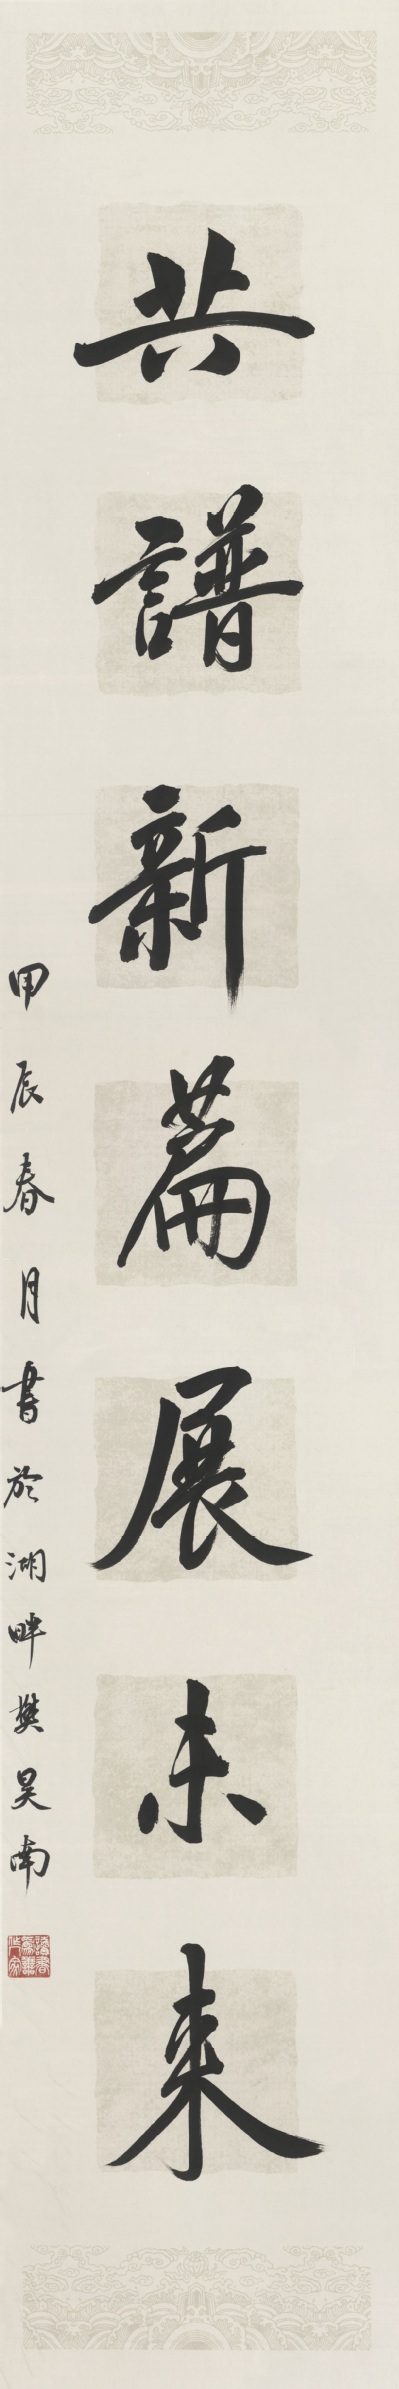 共譜新篇展未来
甲辰春月書於湖畔樊昊南